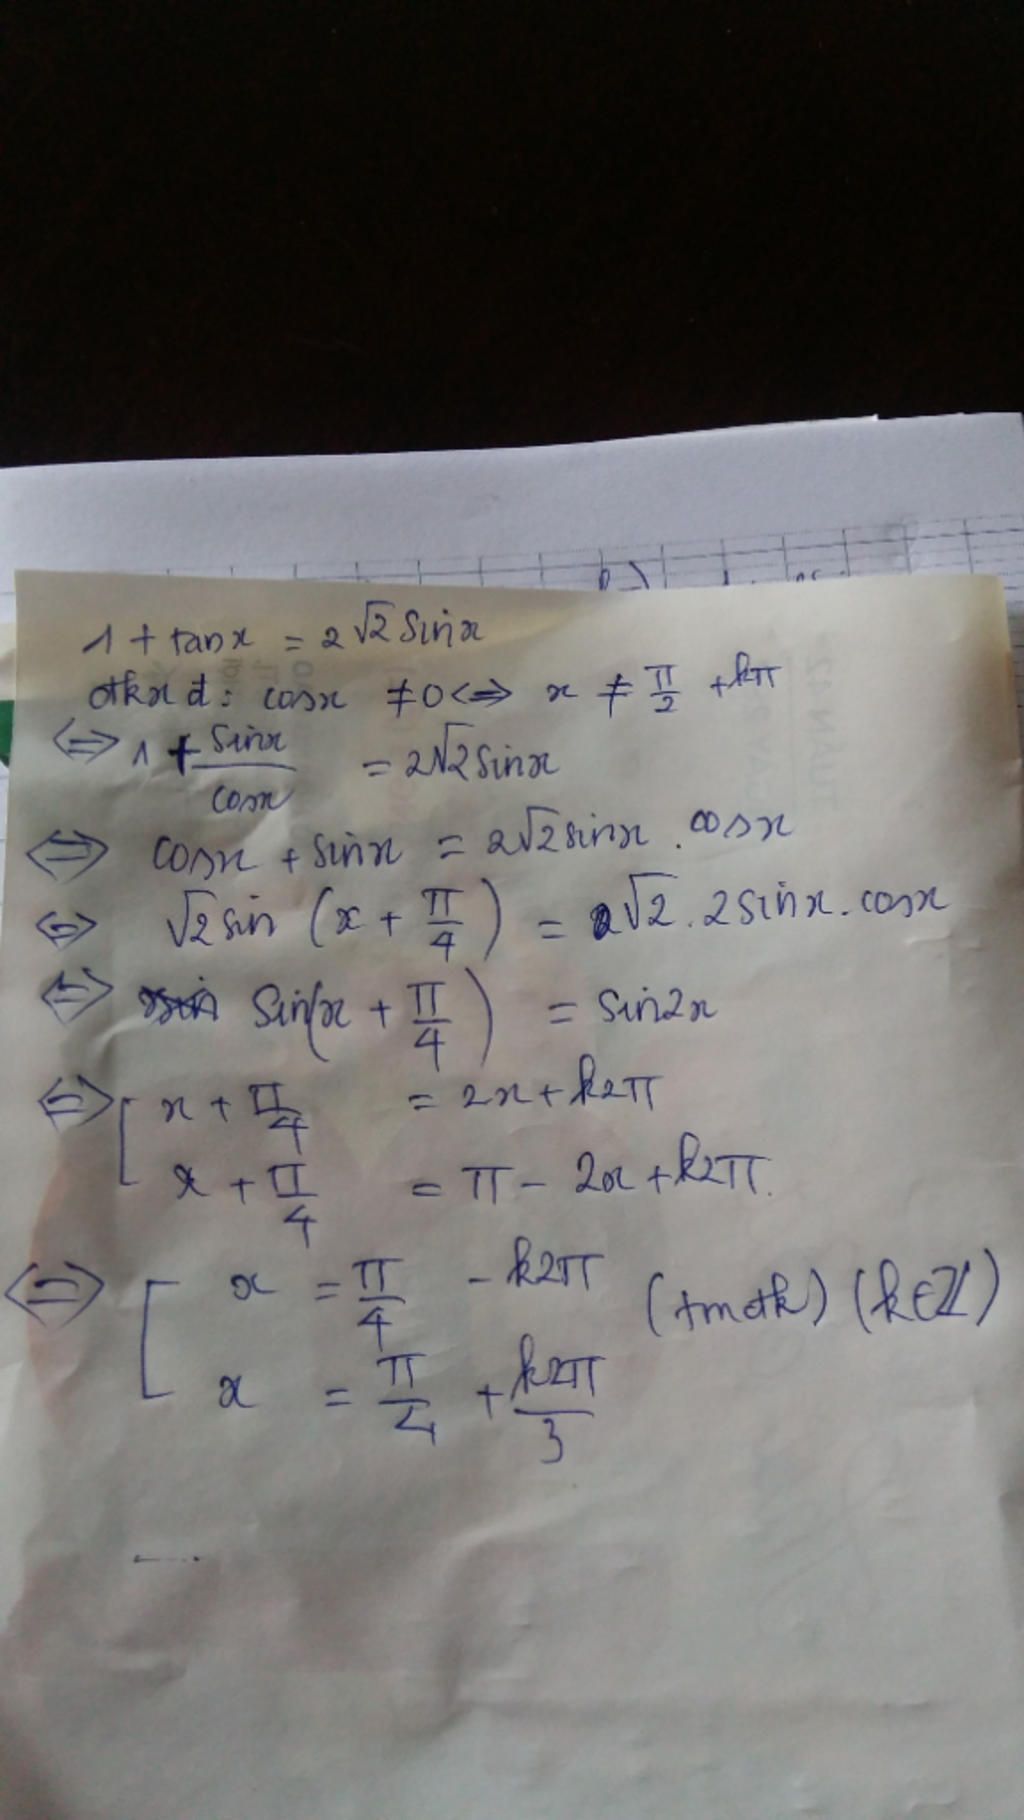 1 + tanx = 2√2 sinx
đkxđ: cosx ≠ 0 <=> x ≠ π/2 + kπ
<=> 1 + sinx/cosx = 2√2 sinx
<=> cosx + sinx = 2√2 sinx . cosx
<=> √2 sin (x + π/4) = √2 . 2 sinx . cosx
<=> sin(x + π/4) = sin2x
<=> [ x + π/4 = 2x + k2π
x + π/4 = π - 2x + k2π.
<=> [ x = π/4 - k2π (tmđk) (k∈Z)
x = π/4 + k2π/3